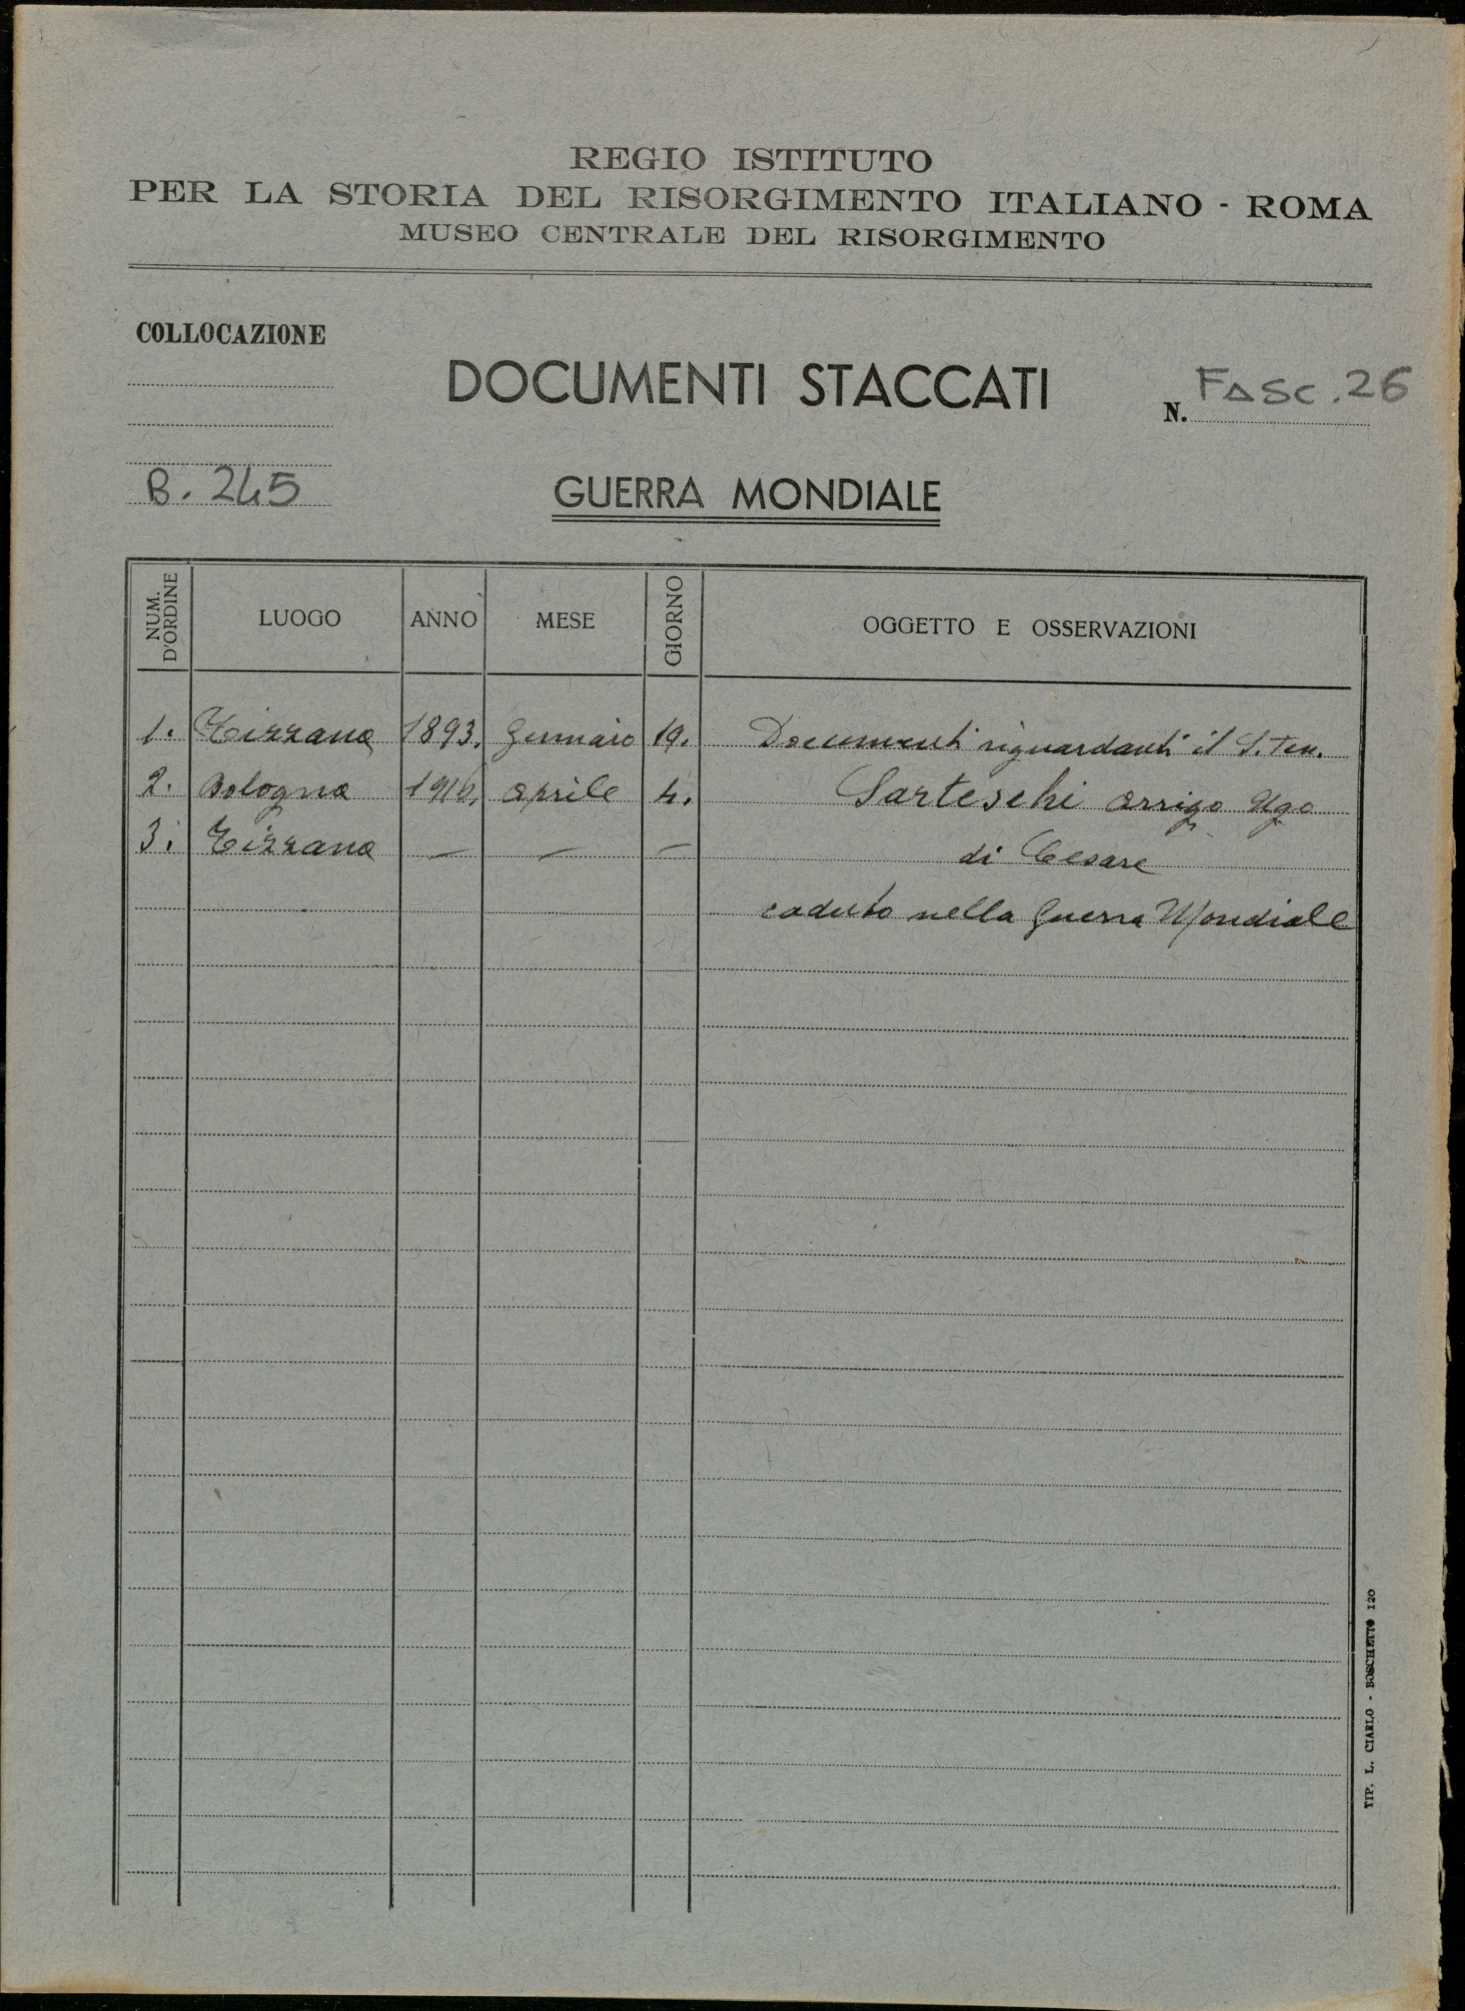 REGIO ISTITUTO
PER LA STORIA DEL RISORGIMENTO ITALIANO - ROMA
MUSEO CENTRALE DEL RISORGIMENTO
COLLOCAZIONE
DOCUMENTI STACCATI
N. FASC. 26
B. 245
GUERRA MONDIALE
NUM. D'ORDINE LUOGO ANNO MESE GIORNO OGGETTO E OSSERVAZIONI
1. Tizzana 1893. Gennaio 19. Documenti riguardanti il S. Ten.
2. Bologna 1916. Aprile 4. Sarteschi Arrigo Ugo
3. Tizzana — — — di Cesare
caduto nella Guerra Mondiale
TIP. L. CIARLO - BOSCHETTO 120